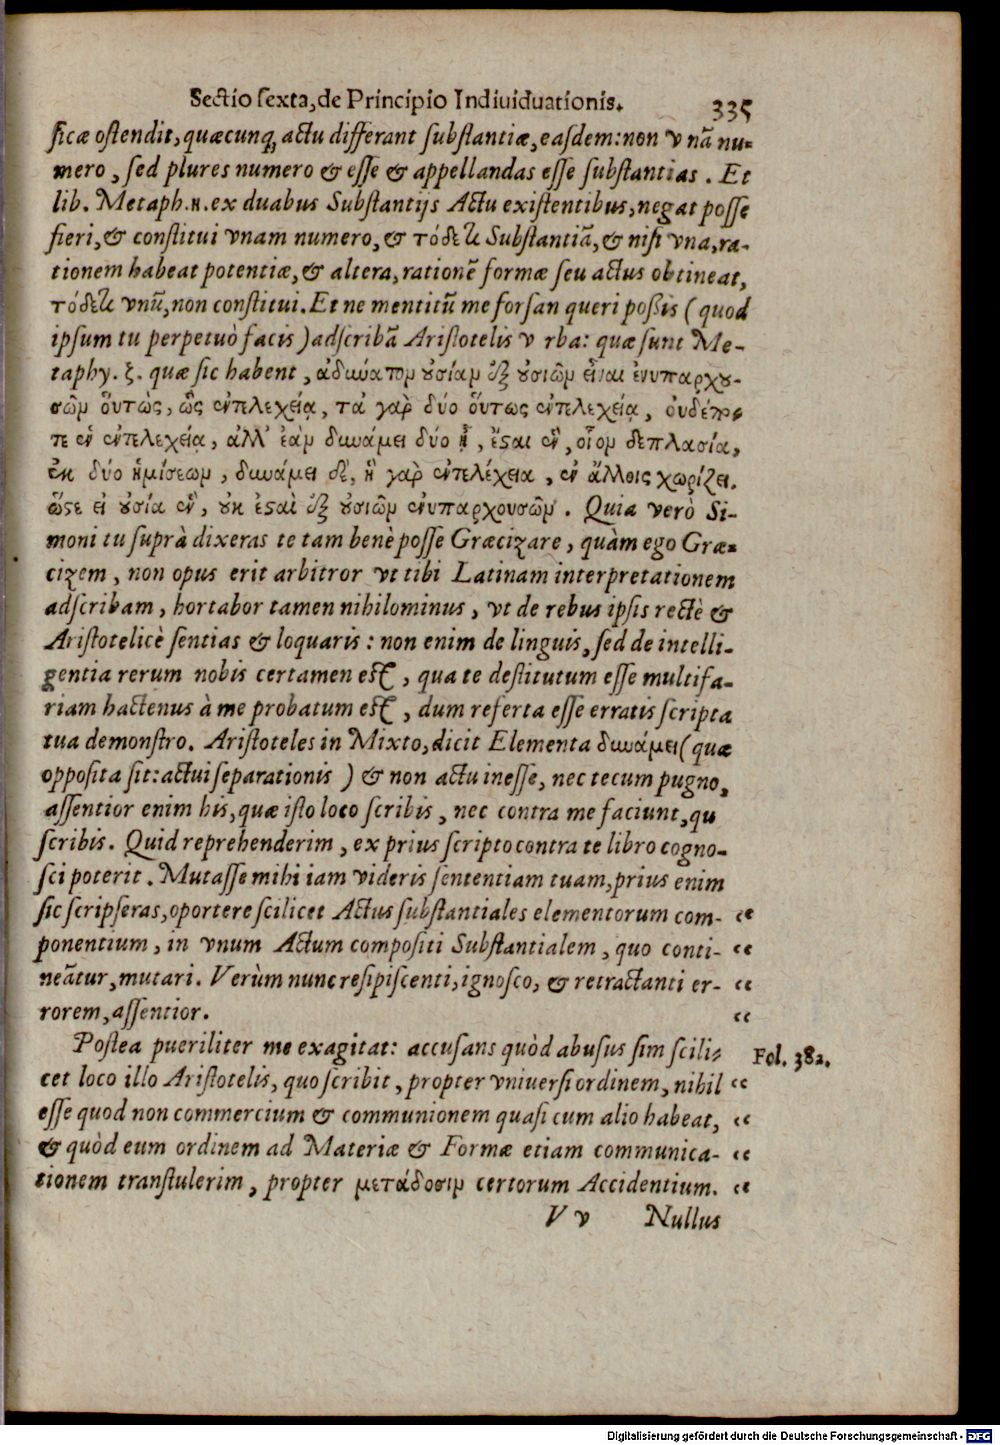 Sectio sexta, de Principio Indiuiduationis. 335
sicæ ostendit, quæcunq́; actu differant substantiæ, easdem: non vnā nu-
mero, sed plures numero & esse & appellandas esse substantias. Et
lib. Metaph. η. ex duabus Substantijs Actu existentibus, negat posse
fieri, & constitui vnam numero, & τόδε τι Substantiā, & nisi vna, ra-
tionem habeat potentiæ, & altera, rationē formæ seu actus obtineat,
τόδε τι vnū, non constitui. Et ne mentitū me forsan queri possis (quod
ipsum tu perpetuò facis) adscribā Aristotelis v rba: quæ sunt Me-
taphy. ζ. quæ sic habent, ἀδυνάτον οὐσίαν ἐξ οὐσιῶν εἶναι ἐνυπαρχου-
σῶν οὕτως, ὡς ἐντελεχείᾳ, τὰ γὰρ δύο οὕτως ἐντελεχείᾳ, οὐδέπο-
τε ἓν ἐντελεχείᾳ, ἀλλ' ἐὰν δυνάμει δύο ᾖ, ἔσται ἓν, οἷον δεπλασία,
ἐκ δύο ἡμίσεων, δυνάμει δὲ, ἡ γὰρ ἐντελέχεια, ἐν ἄλλοις χωρίζει.
ὥστε εἰ οὐσία ἓν, οὐκ ἐσταὶ ἐξ οὐσιῶν ἐνυπαρχουσῶν. Quia verò Si-
moni tu suprà dixeras te tam benè posse Græcizare, quàm ego Græ-
cizem, non opus erit arbitror vt tibi Latinam interpretationem
adscribam, hortabor tamen nihilominus, vt de rebus ipsis rectè &
Aristotelicè sentias & loquaris: non enim de linguis, sed de intelli-
gentia rerum nobis certamen est, qua te destitutum esse multifa-
riam hactenus à me probatum est, dum referta esse erratis scripta
tua demonstro. Aristoteles in Mixto, dicit Elementa δυνάμει (quæ
opposita sit: actui separationis) & non actu inesse, nec tecum pugno,
assentior enim his, quæ isto loco scribis, nec contra me faciunt, qu
scribis. Quid reprehenderim, ex prius scripto contra te libro cogno-
sci poterit. Mutasse mihi iam videris sententiam tuam, prius enim
sic scripseras, oportere scilicet Actus substantiales elementorum com- “
ponentium, in vnum Actum compositi Substantialem, quo conti- “
neātur, mutari. Verùm nunc resipiscenti, ignosco, & retractanti er- “
rorem, assentior. “
Postea pueriliter me exagitat: accusans quòd abusus sim scili- Fol. 382.
cet loco illo Aristotelis, quo scribit, propter vniuersi ordinem, nihil “
esse quod non commercium & communionem quasi cum alio habeat, “
& quòd eum ordinem ad Materiæ & Formæ etiam communica- “
tionem transtulerim, propter μετάδοσιν certorum Accidentium. “
V v Nullus
Digitalisierung gefördert durch die Deutsche Forschungsgemeinschaft - DFG